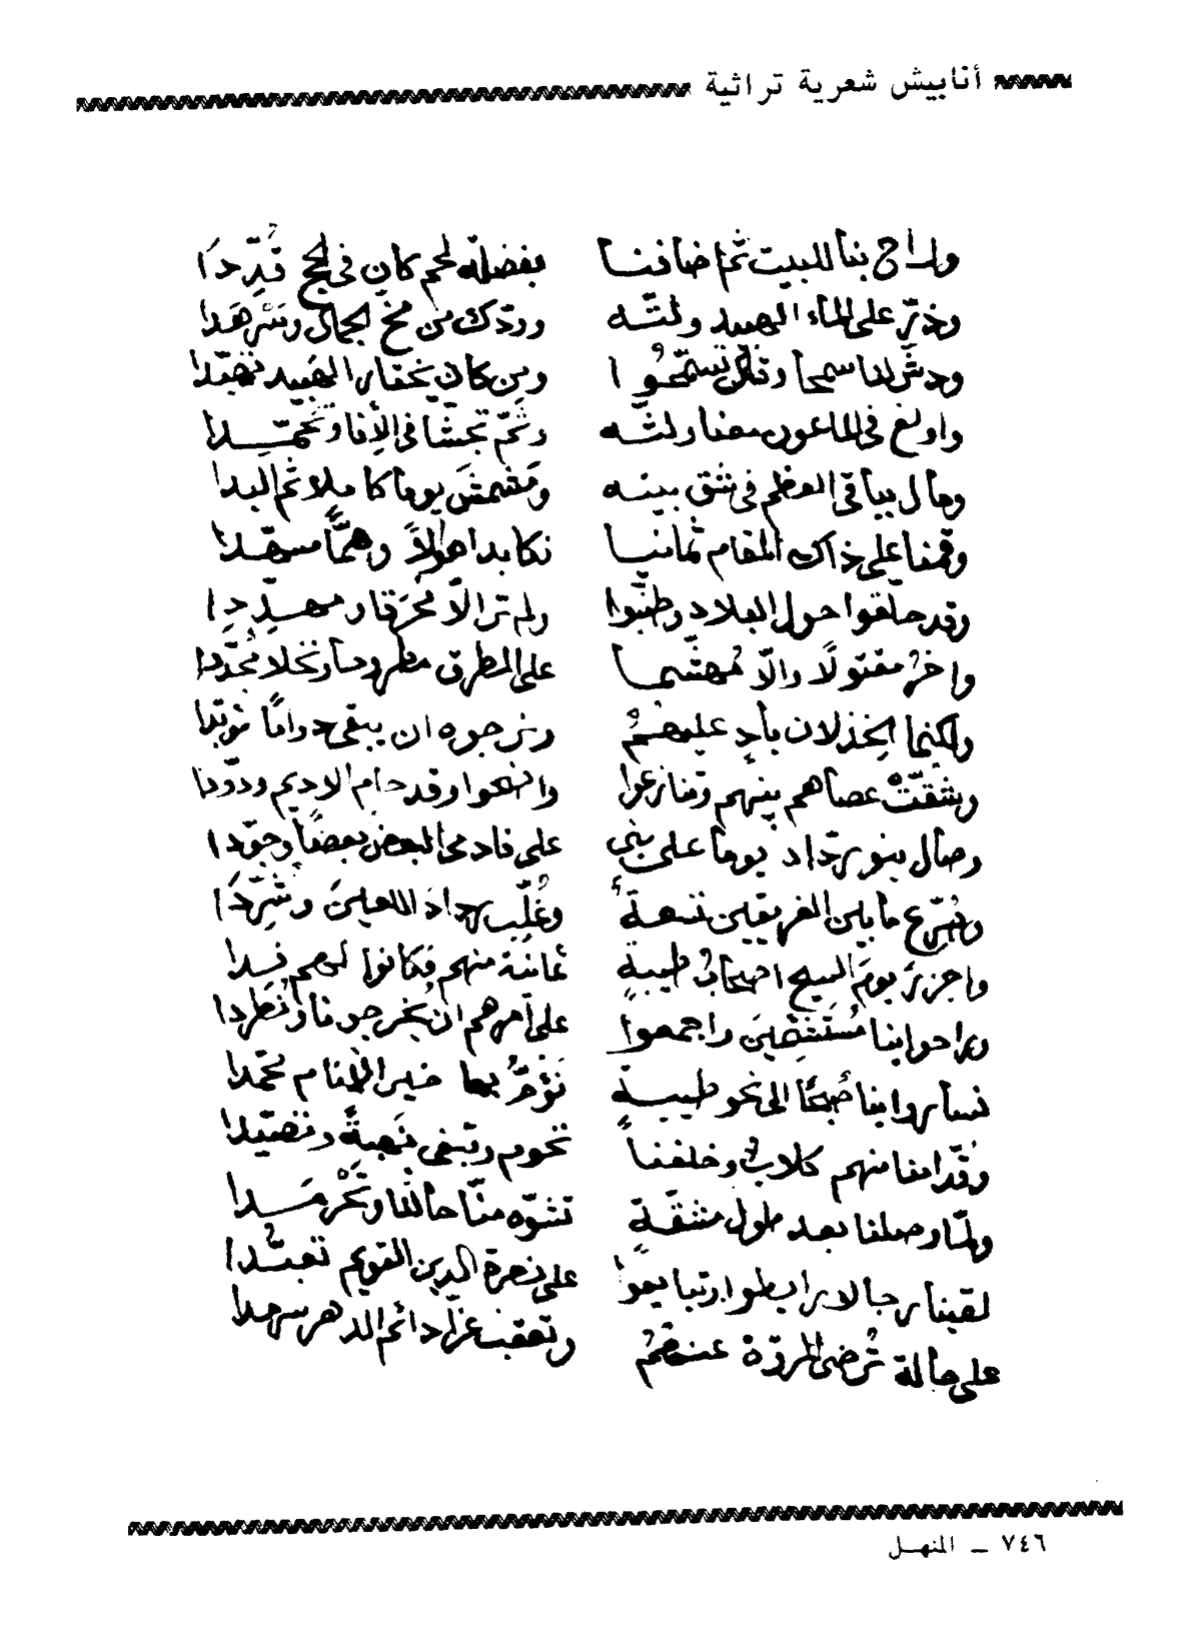 أنابيش شعرية تراثية
وراح بنا للبيت ثم اضافنا بفضلة لحم كان في لحج قُدِّدَا
وذرّ على الماء الهبيد ولتّه وودّك من مخ الجمال وسرهدا
ودشّ لنا سمحا وقال تسمّعوا ومن كان يختار الهبيد تهبّدا
واولغ في الماعون معنا ولتّه وثمّ تجشّا في الأنا وتحمّدا
ومال بباقي العظم في شق بيته ومشمش يوما كاملا ثم ألبدا
وقمنا على ذاك المقام ثمانيا نكابد اهوالاً وهمًّا مسهّدا
وقد حلّقوا حول البلاد وطنّبوا ولم تر الاّ محرقا ومهدِّدا
واخرُ مقتولًا والاّ مهشّما على الطرق مطروحا ونخلا مجدّدا
ولكنما الخذلان بادٍ عليهمُ ونرجوه ان يبقى دوامًا مؤبّدا
وشقّتْ عصاهم بينهم وتنازعوا وانتحوا وقد حام الاديم ودوّدا
وصال بنو برداد يوما على بني على فادمى البعض بعضًا وجوّدا
وفُرّع ما بين الفريقين تسعةٌ وغُلِّب برداد اللعين وشُرِّدَا
واجزرَ يومَ السيح اصحابُ طيبةٍ ثمانية منهم فكانوا لهم فدا
وراحوا بنا مُستنقصينَ واجمعوا على أمرهم ان يُخرجونا ونُطردا
فساروا بنا صبحًا الى نحو طيبةٍ نَؤمّ بها خير الأنام محمّدا
وقدّامنا منهم كلابٌ وخلفنا تحوم وتبغي نهبةً وتصيّدا
ولمّا وصلنا بعد طول مشقّةٍ تشوّه منّا حالنا وتخرمدا
لقينا رجالا رابطوا وتبايعوا على نصرة الدين القويم تعبّدا
على حالة تُرضي المروّة عندهمُ وتعقب عزّا دائم الدهر سرمدا
٧٤٦ ــ المنهـل